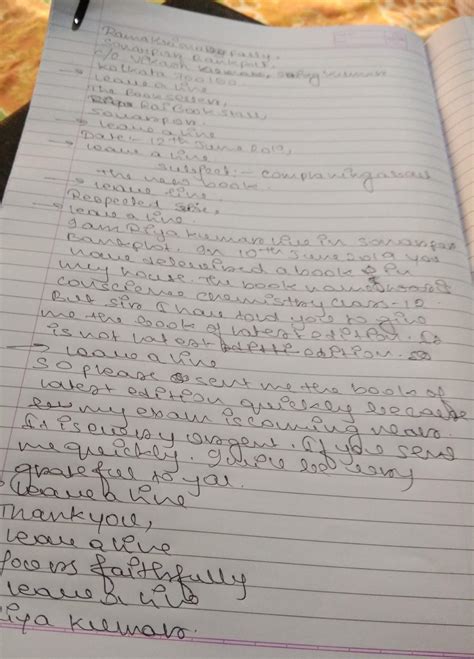 Ramakrishna pally.
Sonarpur Bankplot.
c/o Vikash Kumar,
Kolkata 700150.
→ leave a line
The Book seller,
Raj Book Stall,
Sonarpur
→ leave a line
Date:- 12th June 2019,
→ leave a line
Subject:- complaning about
the new book.
→ leave line.
Respected sir,
→ leave a line.
I am Diya Kumar live in Sonarpur
Bankplot. On 10th June 2019 you
have delevired a book in
my house. The book name
conscience chemistry class-12.
But sir I have told you to give
me the book of latest edition.
is not latest edition.
→ leave a line
So please sent me the book of
latest edition quickly because
my exam is coming near.
It is very urgent. If you send
me quickly. I will be very
grateful to you.
leave a line
Thank you,
leave a line
yours faithfully
leave a line
Diya Kumar.